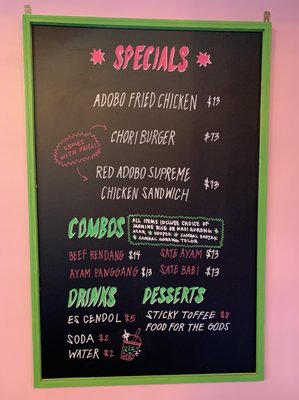 SPECIALS
ADOBO FRIED CHICKEN $13
COMES
WITH FRIES!
CHORI BURGER $13
RED ADOBO SUPREME
CHICKEN SANDWICH $13
COMBOS
ALL ITEMS INCLUDE CHOICE OF
JASMINE RICE OR NASI GORENG +
ACAR + KRUPUK + SAMBAL BADJAK
+ SAMBAL GORENG TELOR
BEEF RENDANG $14 SATE AYAM $13
AYAM PANGGANG $13 SATE BABI $13
DRINKS
ES CENDOL $5
SODA $2
WATER $2
DESSERTS
STICKY TOFFEE $8
FOOD FOR THE GODS